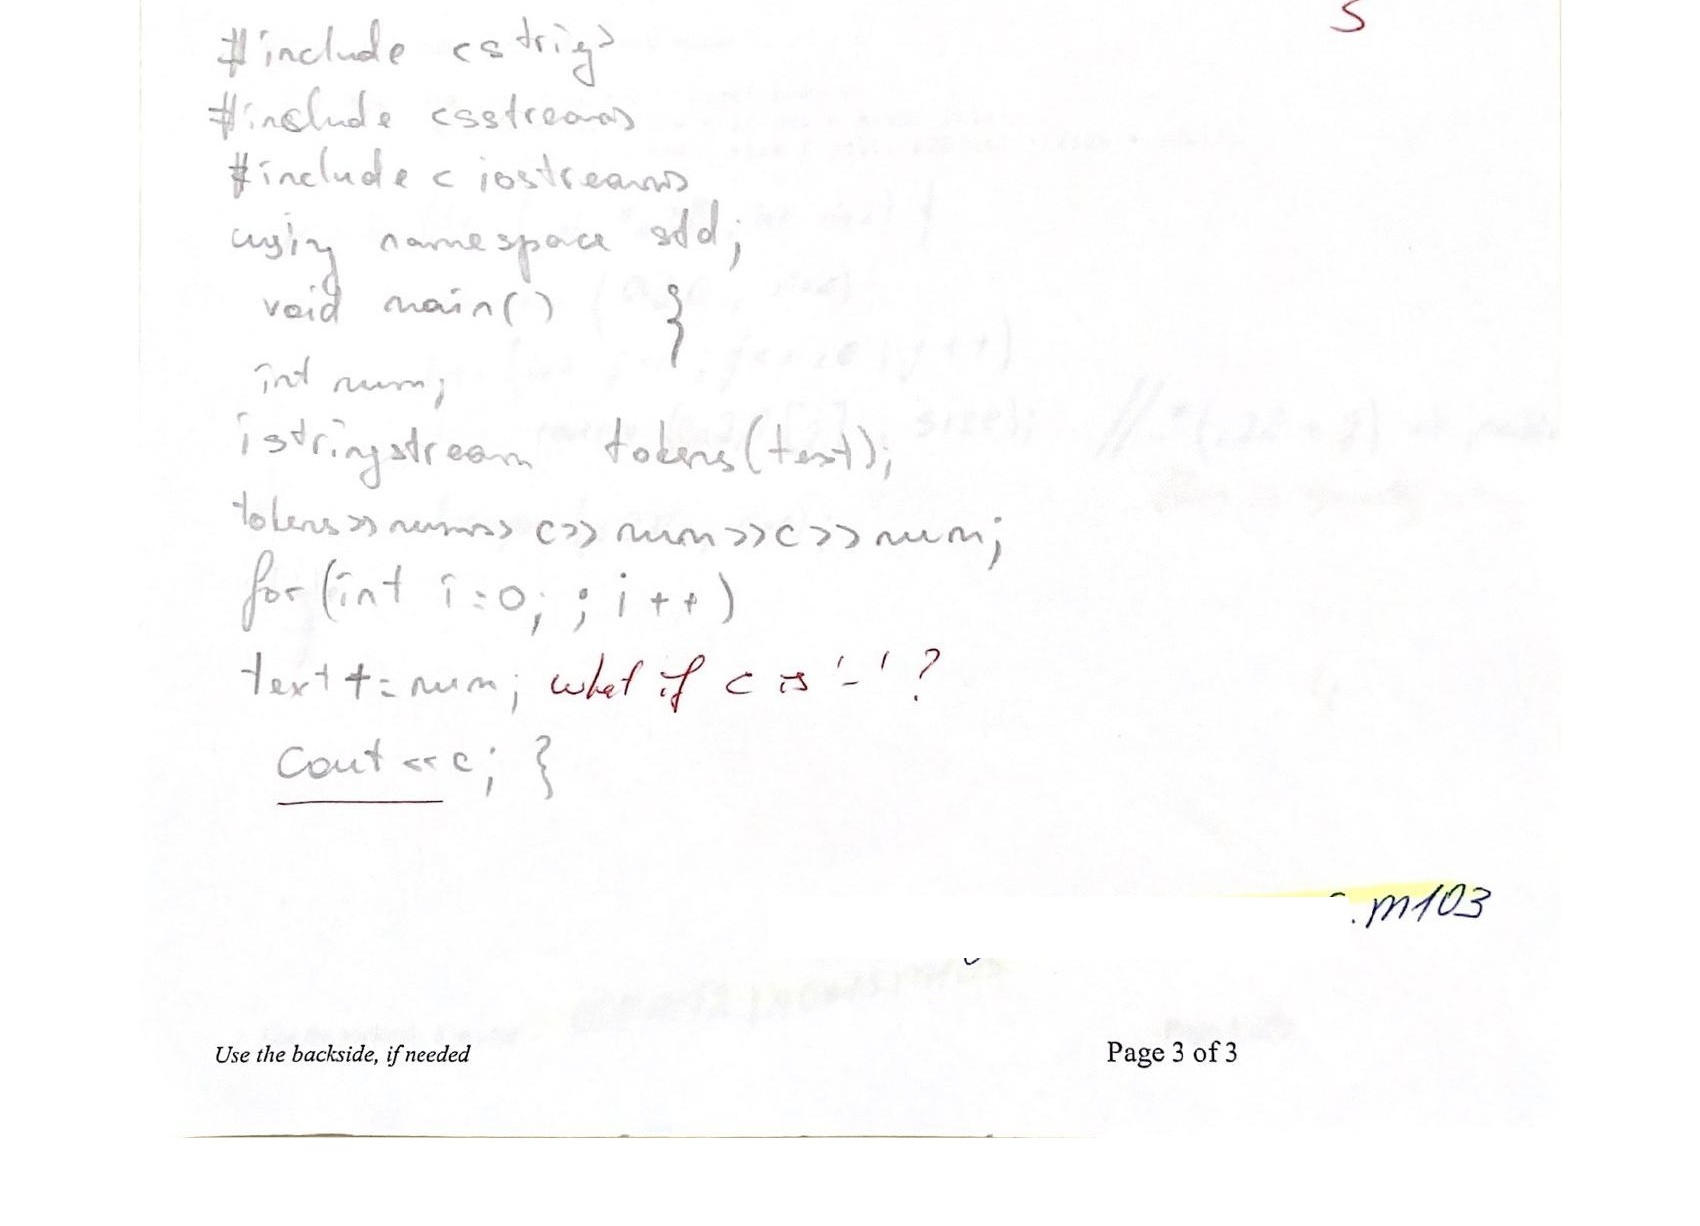 5
#include <strig>
#include <sstream>
#include <iostream>
using namespace std;
void main() }
int num;
istringstream tokens(text);
tokens>>num>> c>> num>>c>>num;
for(int i=0; ; i++)
text += num; what if c is '-' ?
cout << c; }
.m103
Use the backside, if needed
Page 3 of 3